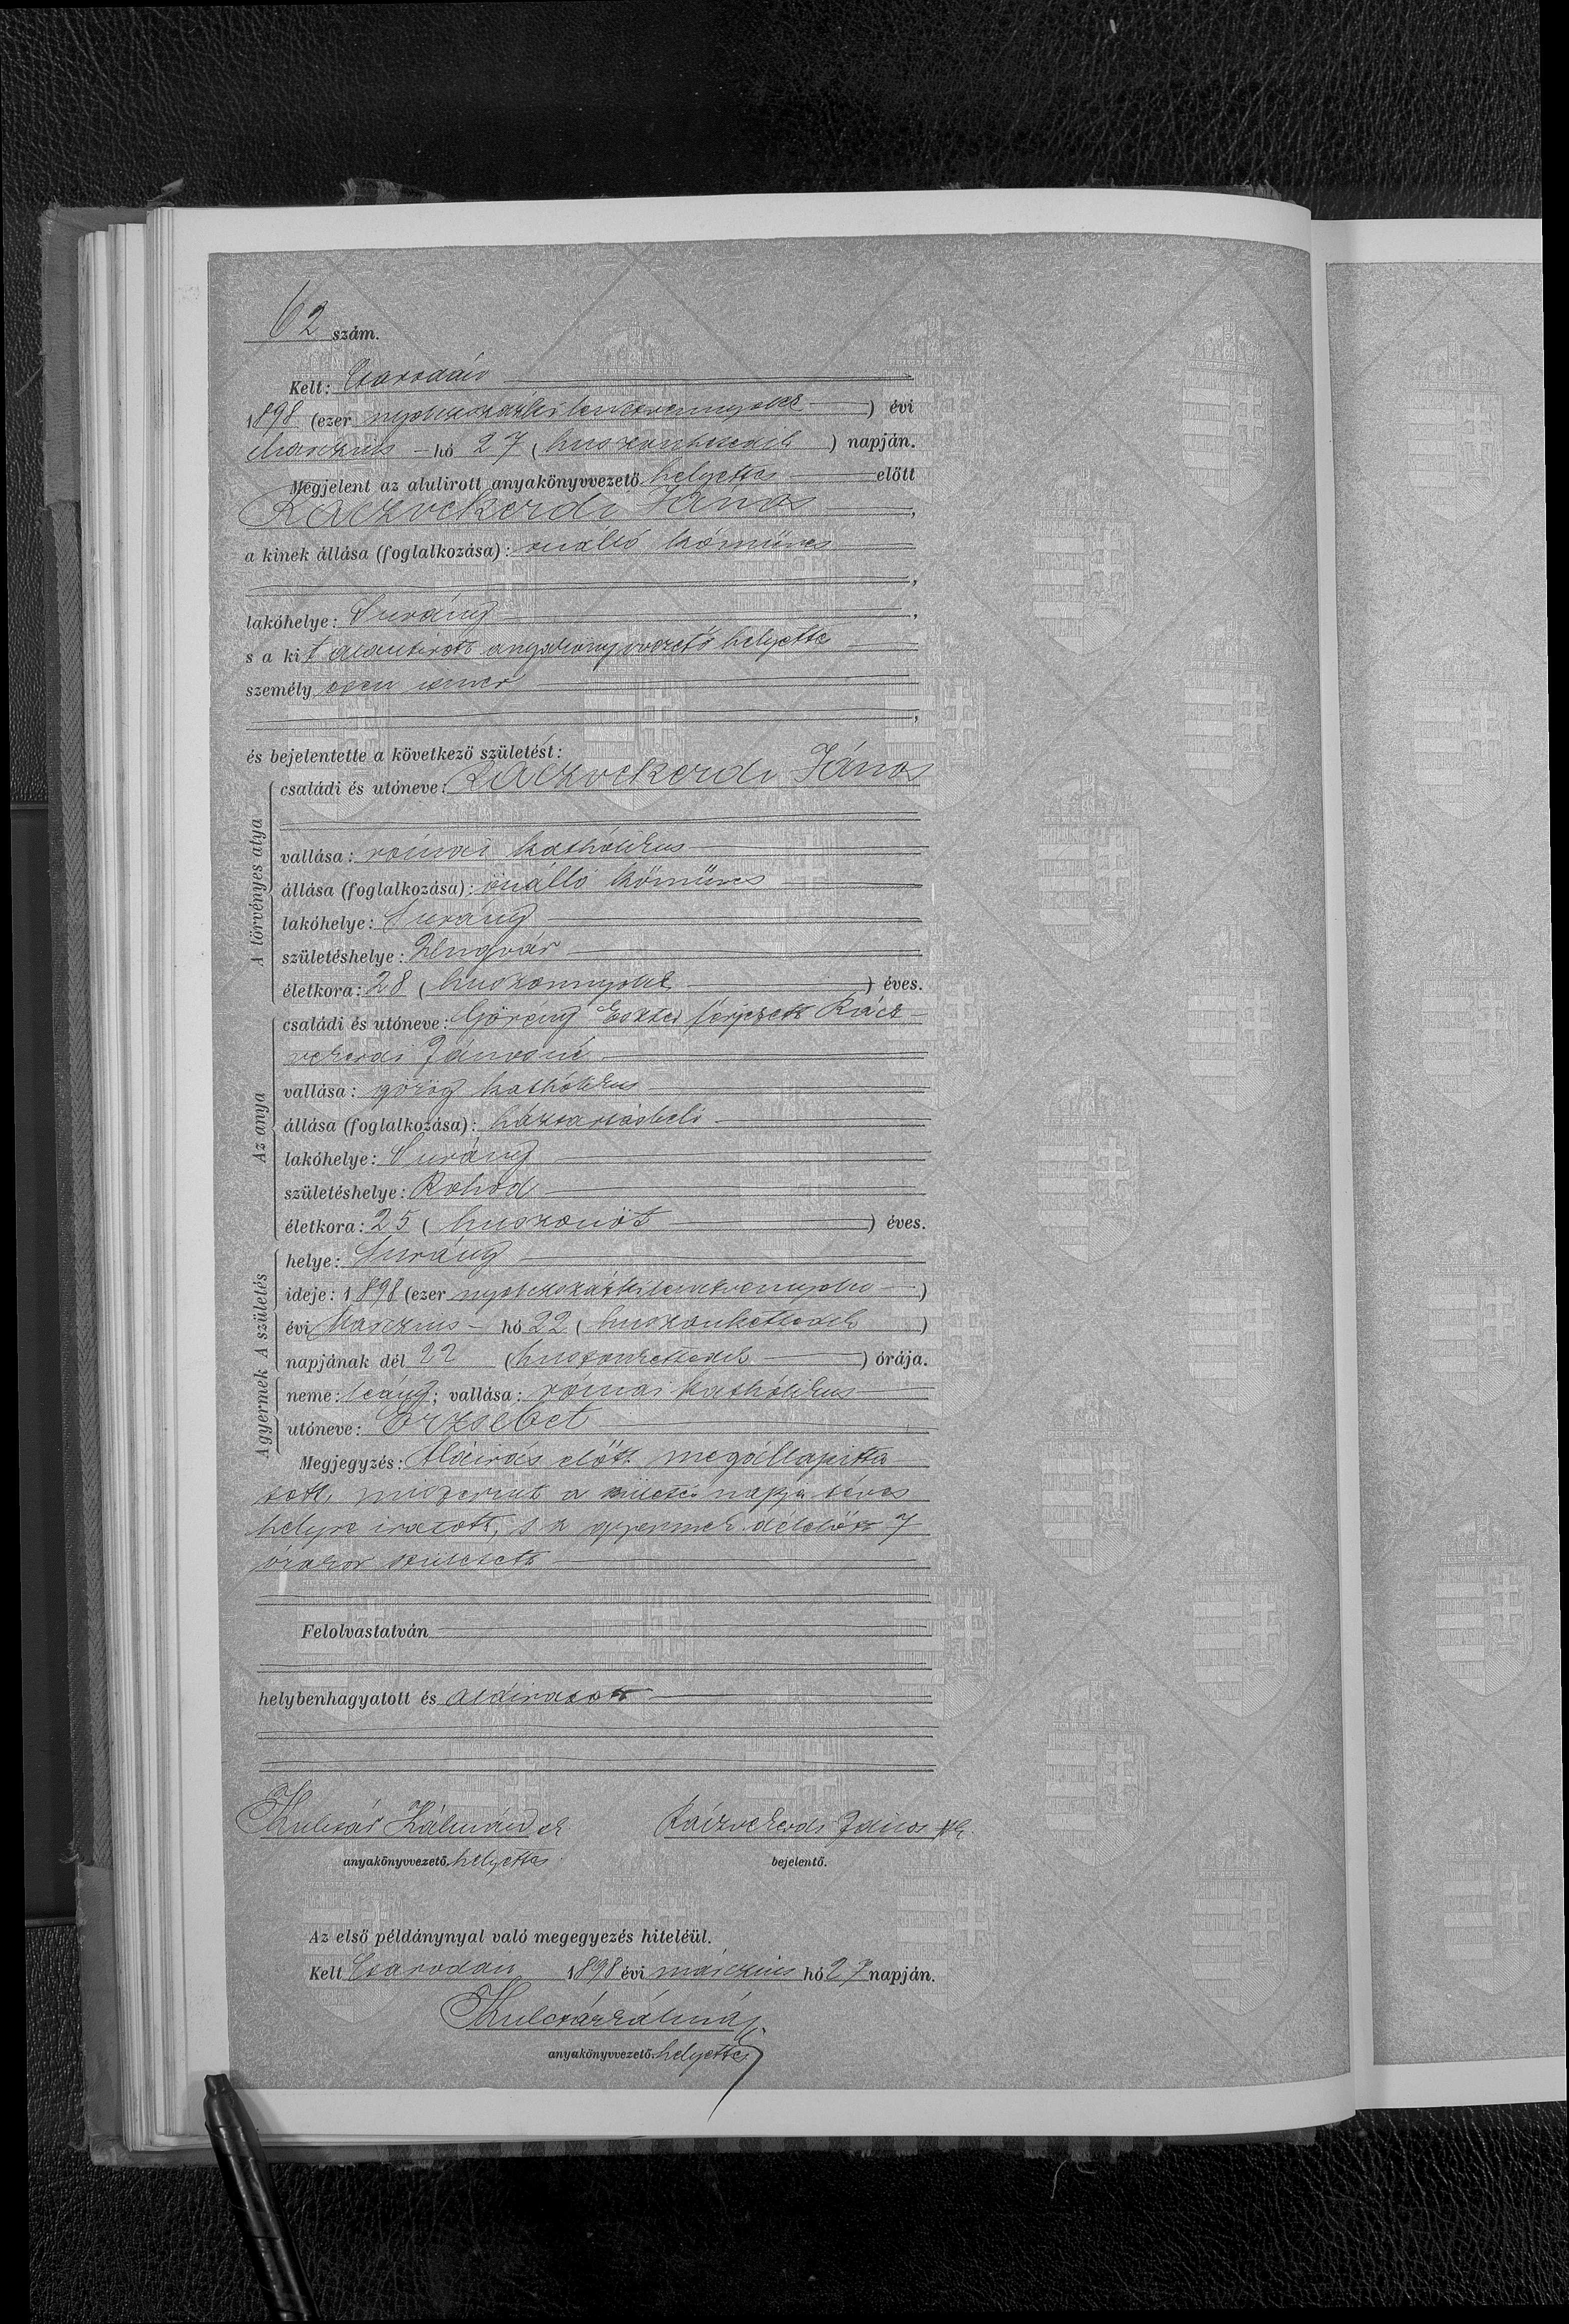 62 szám.
Kelt: Csarodán
1898 (ezer nyolczszázkilenczvennyolcz) évi
Márczius hó 27 (huszonhetedik) napján.
Megjelent az alulirott anyakönyvvezető helyettes előtt
Ráczvekerdi János,
a kinek állása (foglalkozása): önálló kőműves
lakóhelye: Surány,
s a kit alantirott anyakönyvvezető helyettes
személyesen ismer
és bejelentette a következő születést:
A törvényes atya
családi és utóneve: Ráczvekerdi János
vallása: római katholikus
állása (foglalkozása): önálló kőműves
lakóhelye: Surány
születéshelye: Ungvár
életkora: 28 (huszonnyolcz) éves.
Az anya
családi és utóneve: Görény Eszter férjezett Rácz-
vekerdi Jánosné
vallása: görög katholikus
állása (foglalkozása): háztartásbeli
lakóhelye: Surány
születéshelye: Rohod
életkora: 25 (huszonöt) éves.
A születés
helye: Surány
ideje: 1898 (ezer nyolczszázkilenczvennyolcz)
évi Márczius hó 22 (huszonkettedik)
napjának dél 22 (huszonkettedik) órája.
A gyermek
neme: leány; vallása: római katholikus
utóneve: Erzsébet
Megjegyzés: Aláirás előtt megállapitta
tott, miszerint a születés napja téves
helyre iratott, s a gyermek délelőtt 7
órakor született
Felolvastatván
helybenhagyatott és aláiratott
Kulcsár Kálmán sk Ráczvekerdi János sk.
anyakönyvvezető helyettes bejelentő.
Az első példánynyal való megegyezés hiteléül.
Kelt Csarodán 1898 évi márczius hó 27 napján.
Kulcsár Kálmán
anyakönyvvezető helyettes